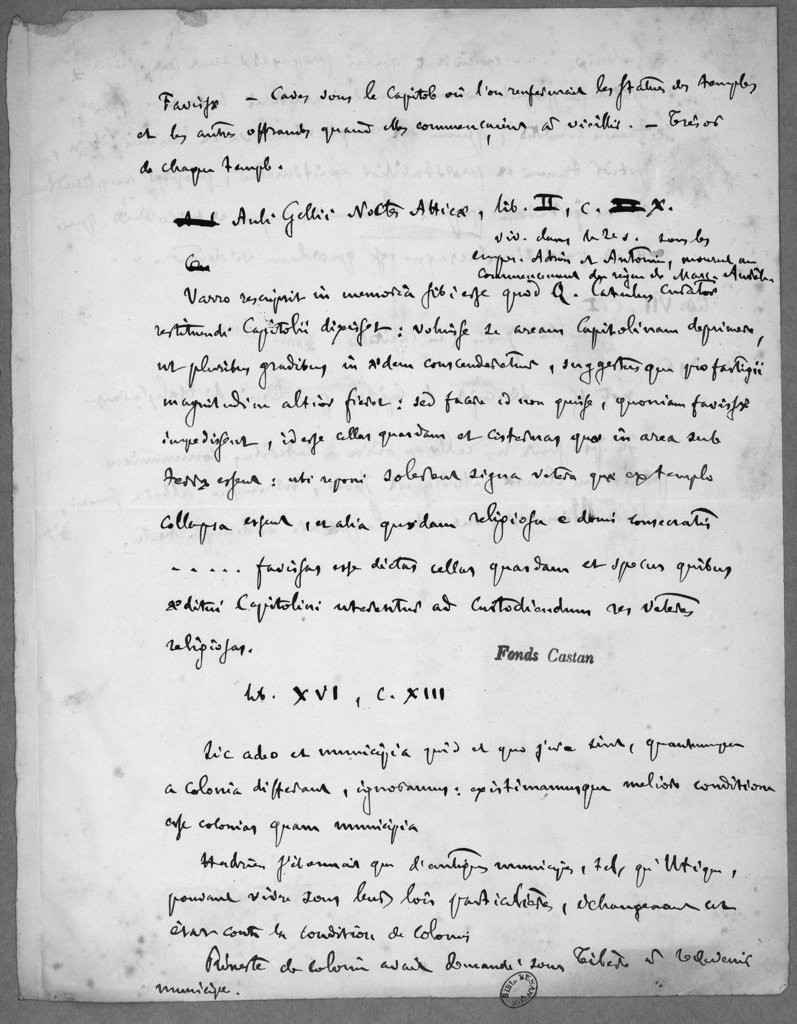 Favissæ — Caves sous le Capitole où l'on renfermait les statues des temples
et les autres offrandes quand elles commençaient à vieillir. — Trésor
de chaque temple.
Auli Gellii Noctes Atticæ, lib. II, c. X.
viv. dans le 2e s. sous les
emper. Adrien et Antonin, mourut au
commencement du règne de Marc-Aurèle
Varro rescripsit in memoria sibi esse quod Q. Catulus curator
restituendi Capitolii dixisset : voluisse se aream Capitolinam deprimere,
ut pluribus gradibus in ædem conscenderetur, suggestusque pro fastigii
magnitudine altior fieret : sed facere id non quisse, quoniam favissæ
impedissent, id esse cellas quasdam et cisternas quæ in area sub
terra essent : ubi reponi solerent signa vetera quæ ex templo
collapsa essent, et alia quædam religiosa e donis consecratis
..... favissas esse dictas cellas quasdam et specus quibus
æditui Capitolini uterentur ad custodiendum res veteres
religiosas.
Fonds Castan
lib. XVI, c. XIII
Sic adeo et municipia quid et quo jure sint, quantumque
a colonia differant, ignoramus : existimamusque meliore conditione
esse colonias quam municipia
Hadrien s'étonnait que d'antiques municipes, tels qu'Utique,
pouvant vivre sous leurs lois particulières, échangeassent cet
état contre la condition de colonies
Préneste de colonie avait demandé sous Tibère à redevenir
municipe.
BIBL. BESANÇON